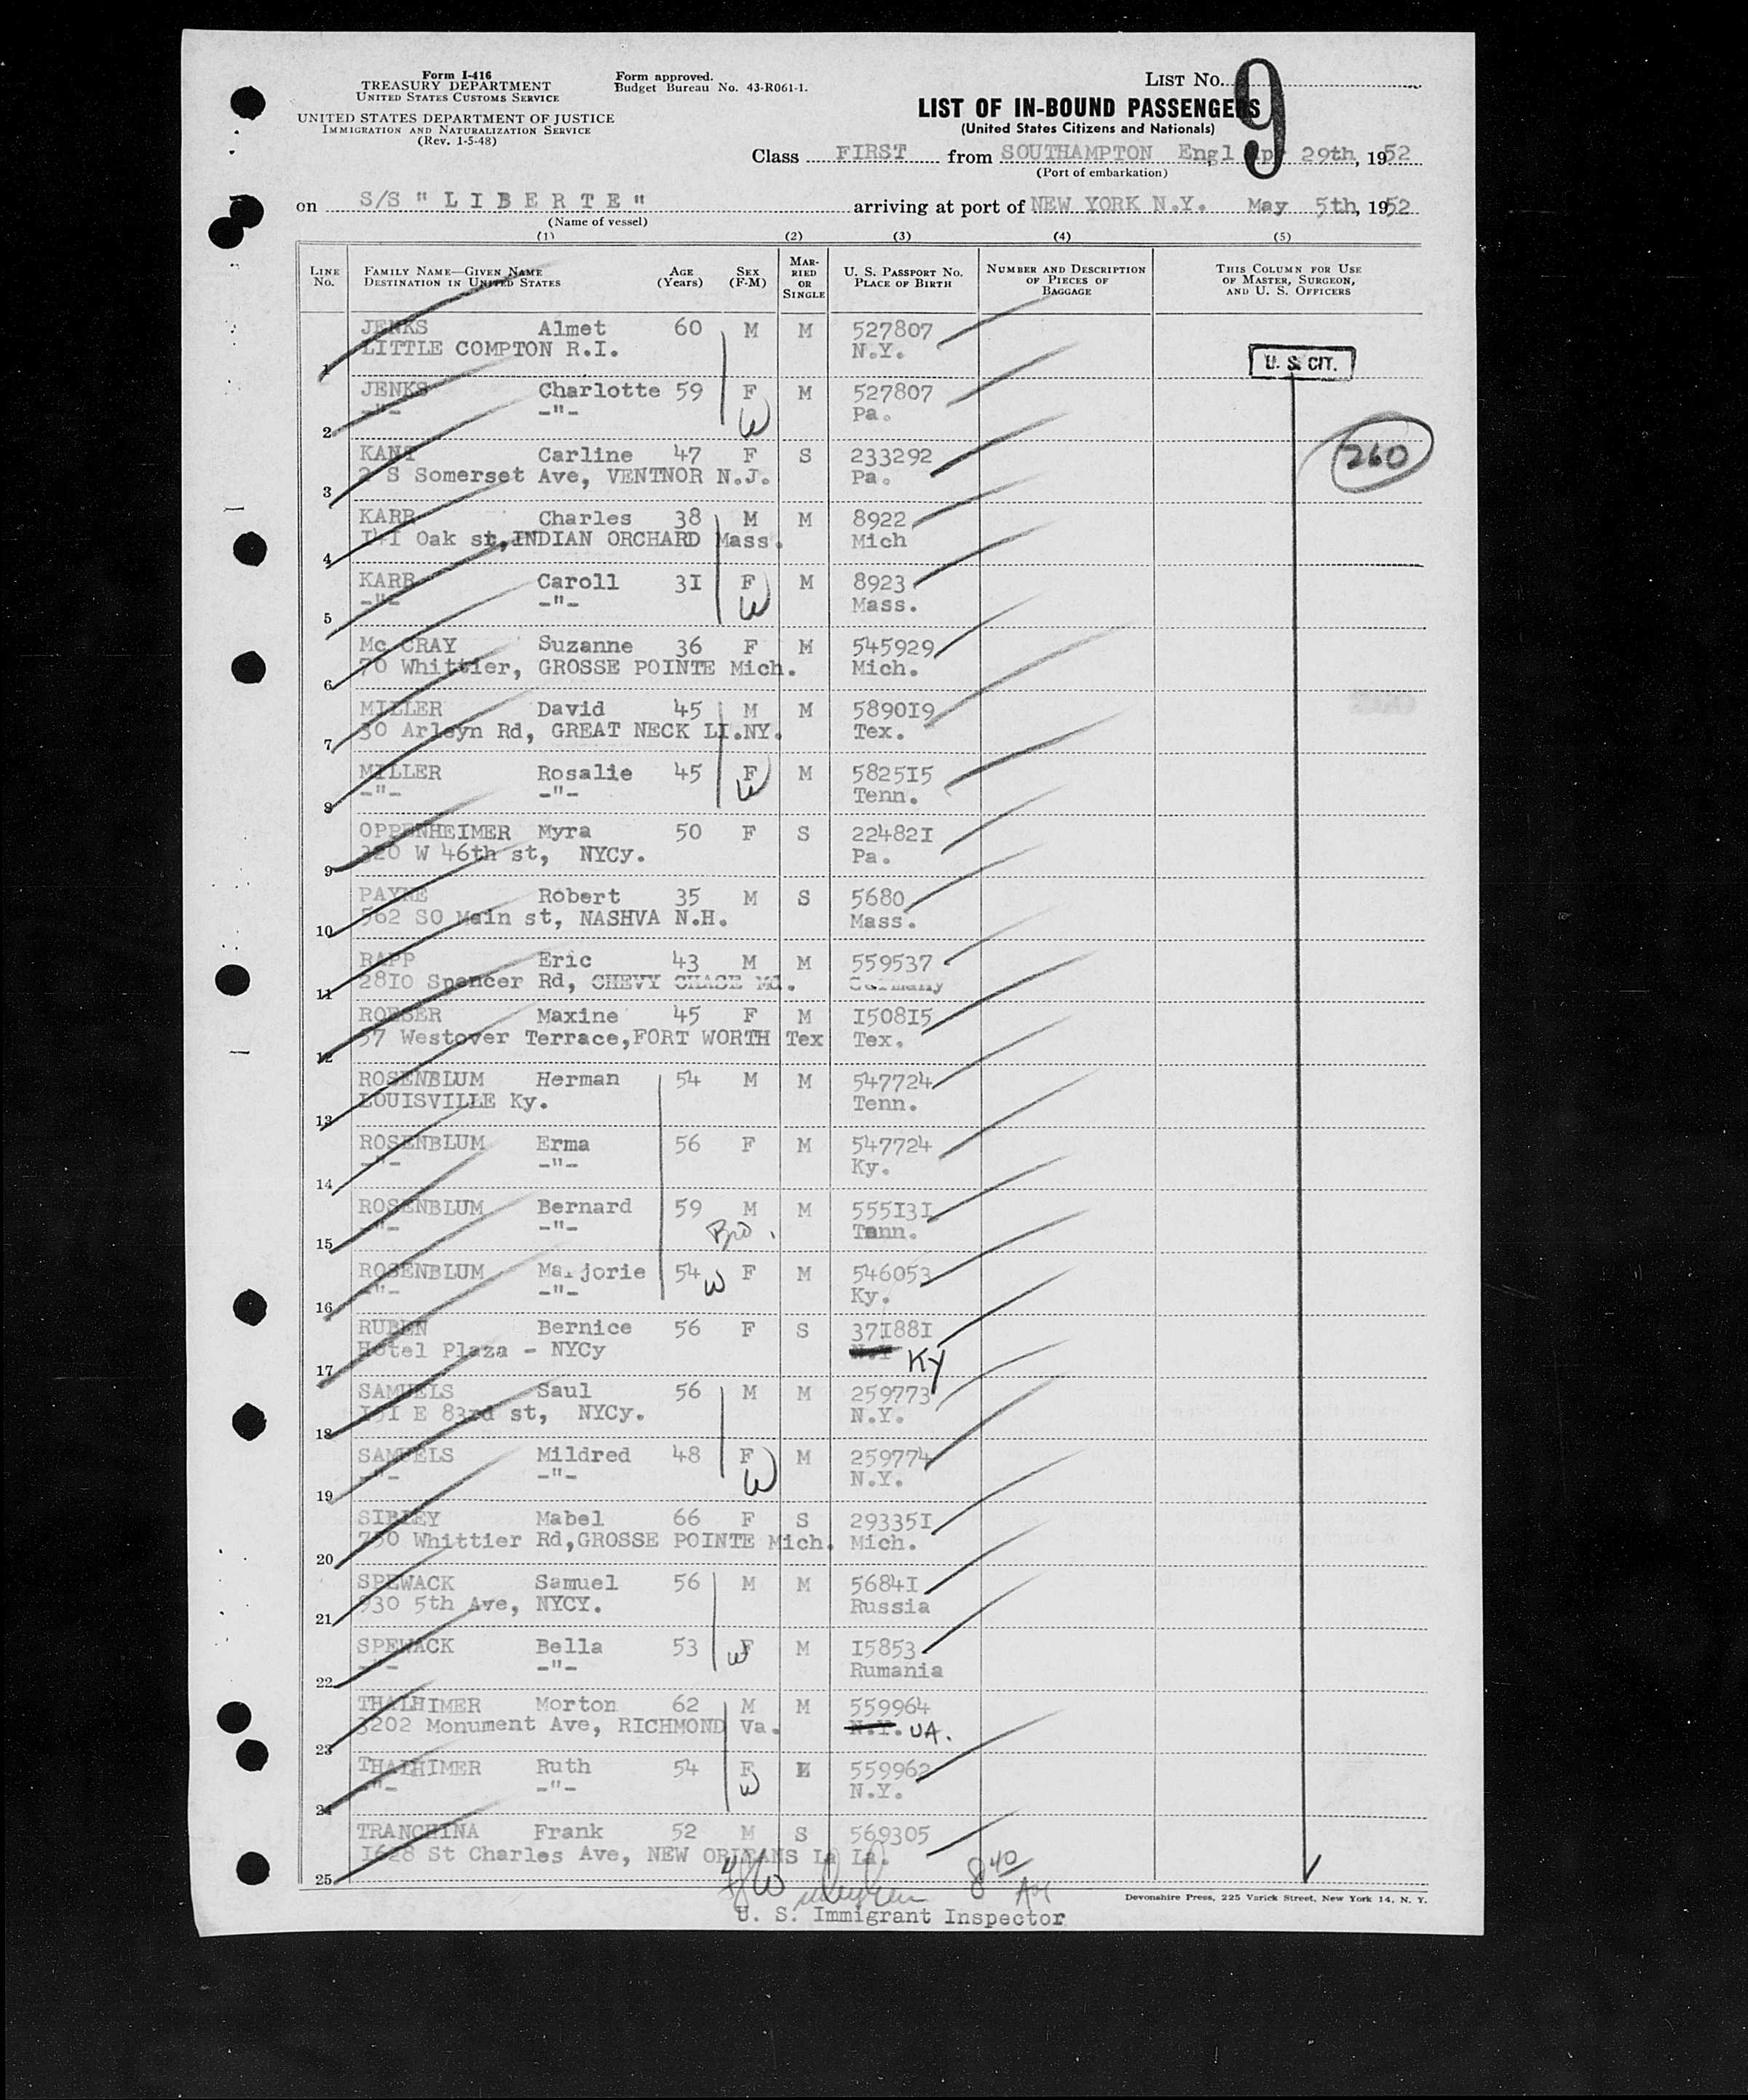 Form I-416
TREASURY DEPARTMENT
UNITED STATES CUSTOMS SERVICE
UNITED STATES DEPARTMENT OF JUSTICE
IMMIGRATION AND NATURALIZATION SERVICE
(Rev. 1-5-48)
Form approved.
Budget Bureau No. 43-R061-1.
LIST No. 9
LIST OF IN-BOUND PASSENGERS
(United States Citizens and Nationals)
Class FIRST from SOUTHAMPTON Engl Apr 29th, 1952
(Port of embarkation)
on S/S " L I B E R T E " arriving at port of NEW YORK N.Y. May 5th, 1952
(Name of vessel)
(1) (2) (3) (4) (5)
LINE No. FAMILY NAME—GIVEN NAME DESTINATION IN UNITED STATES AGE (Years) SEX (F-M) MARRIED OR SINGLE U. S. PASSPORT NO. PLACE OF BIRTH NUMBER AND DESCRIPTION OF PIECES OF BAGGAGE THIS COLUMN FOR USE OF MASTER, SURGEON, AND U. S. OFFICERS
JENKS Almet 60 M M 527807
1 LITTLE COMPTON R.I. N.Y.
U. S. CIT.
JENKS Charlotte 59 F M 527807
2 -"- -"- W Pa.
260
KANT Carline 47 F S 233292
3 2 S Somerset Ave, VENTNOR N.J. Pa.
KARR Charles 38 M M 8922
4 I4I Oak st, INDIAN ORCHARD Mass. Mich
KARR Caroll 3I F M 8923
5 -"- -"- W Mass.
Mc CRAY Suzanne 36 F M 545929
6 70 Whittier, GROSSE POINTE Mich. Mich.
MILLER David 45 M M 5890I9
7 30 Arleyn Rd, GREAT NECK LI.NY. Tex.
MILLER Rosalie 45 F M 5825I5
8 -"- -"- W Tenn.
OPPENHEIMER Myra 50 F S 22482I
9 320 W 46th st, NYCy. Pa.
PAYNE Robert 35 M S 5680
10 562 SO Main st, NASHVA N.H. Mass.
RAPP Eric 43 M M 559537
11 28I0 Spencer Rd, CHEVY CHASE Md. Germany
ROESER Maxine 45 F M I508I5
12 57 Westover Terrace, FORT WORTH Tex Tex.
ROSENBLUM Herman 54 M M 547724
13 LOUISVILLE Ky. Tenn.
ROSENBLUM Erma 56 F M 547724
14 -"- -"- Ky.
ROSENBLUM Bernard 59 M M 555I3I
15 -"- -"- Bro. Tenn.
ROSENBLUM Marjorie 54 W F M 546053
16 -"- -"- Ky.
RUBEN Bernice 56 F S 37I88I
17 Hotel Plaza - NYCy N.Y Ky
SAMUELS Saul 56 M M 259773
18 I5I E 83rd st, NYCy. N.Y.
SAMUELS Mildred 48 F M 259774
19 -"- -"- W N.Y.
SIBLEY Mabel 66 F S 29335I
20 730 Whittier Rd, GROSSE POINTE Mich. Mich.
SPEWACK Samuel 56 M M 5684I
21 930 5th Ave, NYCY. Russia
SPEWACK Bella 53 W F M I5853
22 -"- -"- Rumania
THALHIMER Morton 62 M M 559964
23 3202 Monument Ave, RICHMOND Va. N.Y. VA.
THALHIMER Ruth 54 F 559962
24 -"- -"- W N.Y.
TRANCHINA Frank 52 M S 569305
25 I628 St Charles Ave, NEW ORLEANS La La.
8 40
U. S. Immigrant Inspector
Devonshire Press, 225 Varick Street, New York 14, N. Y.